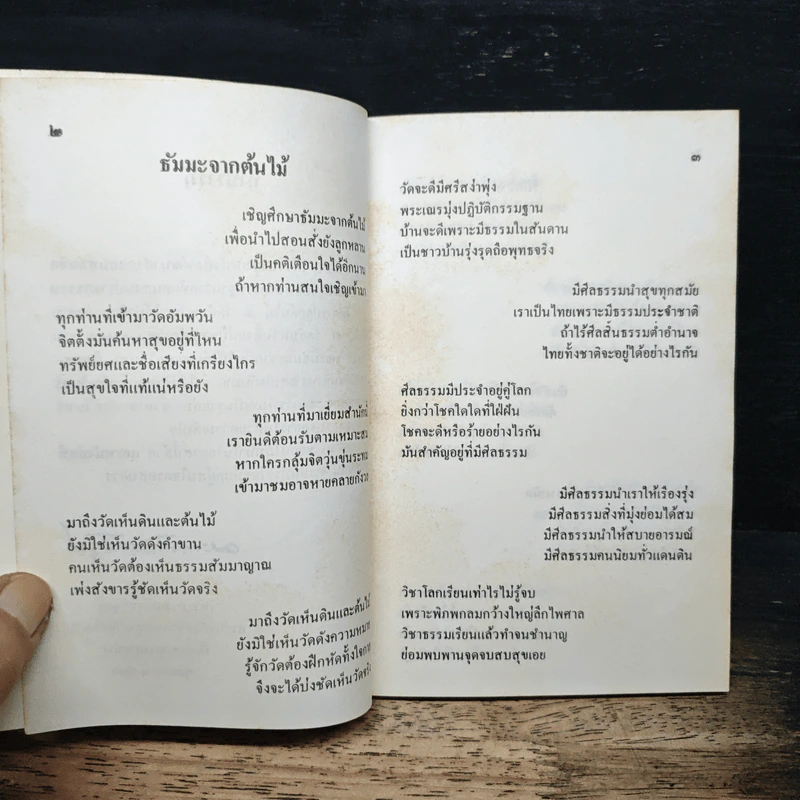 ๒
ธัมมะจากต้นไม้
เชิญศึกษาธัมมะจากต้นไม้
เพื่อนำไปสอนสั่งยังลูกหลาน
เป็นคติเตือนใจได้อีกนาน
ถ้าหากท่านสนใจเชิญเข้ามา
ทุกท่านที่เข้ามาวัดอัมพวัน
จิตตั้งมั่นค้นหาสุขอยู่ที่ไหน
ทรัพย์ยศและชื่อเสียงที่เกรียงไกร
เป็นสุขใจที่แท้แน่หรือยัง
ทุกท่านที่มาเยี่ยมสำนักนี้
เรายินดีต้อนรับตามเหมาะสม
หากใครกลุ้มจิตวุ่นขุ่นระทม
เข้ามาชมอาจหายคลายกังวล
มาถึงวัดเห็นดินและต้นไม้
ยังมิใช่เห็นวัดดังคำขาน
คนเห็นวัดต้องเห็นธรรมสัมมาญาณ
เพ่งสังขารรู้ชัดเห็นวัดจริง
มาถึงวัดเห็นดินและต้นไม้
ยังมิใช่เห็นวัดดังความหมาย
รู้จักวัดต้องฝึกหัดทั้งใจกาย
จึงจะได้บ่งชัดเห็นวัดจริง
๓
วัดจะดีมีศรีสง่าพุ่ง
พระเณรมุ่งปฏิบัติกรรมฐาน
บ้านจะดีเพราะมีธรรมในสันดาน
เป็นชาวบ้านรุ่งรุดถือพุทธจริง
มีศีลธรรมนำสุขทุกสมัย
เราเป็นไทยเพราะมีธรรมประจำชาติ
ถ้าไร้ศีลสิ้นธรรมต่ำอำนาจ
ไทยทั้งชาติจะอยู่ได้อย่างไรกัน
ศีลธรรมมีประจำอยู่คู่โลก
ยิ่งกว่าโชคใดใดที่ใฝ่ฝัน
โชคจะดีหรือร้ายอย่างไรกัน
มันสำคัญอยู่ที่มีศีลธรรม
มีศีลธรรมนำเราให้เรืองรุ่ง
มีศีลธรรมสิ่งที่มุ่งย่อมได้สม
มีศีลธรรมนำให้สบายอารมณ์
มีศีลธรรมคนนิยมทั่วแดนดิน
วิชาโลกเรียนเท่าไรไม่รู้จบ
เพราะพิภพกลมกว้างใหญ่ลึกไพศาล
วิชาธรรมเรียนแล้วทำจนชำนาญ
ย่อมพบพานจุดจบสบสุขเอย